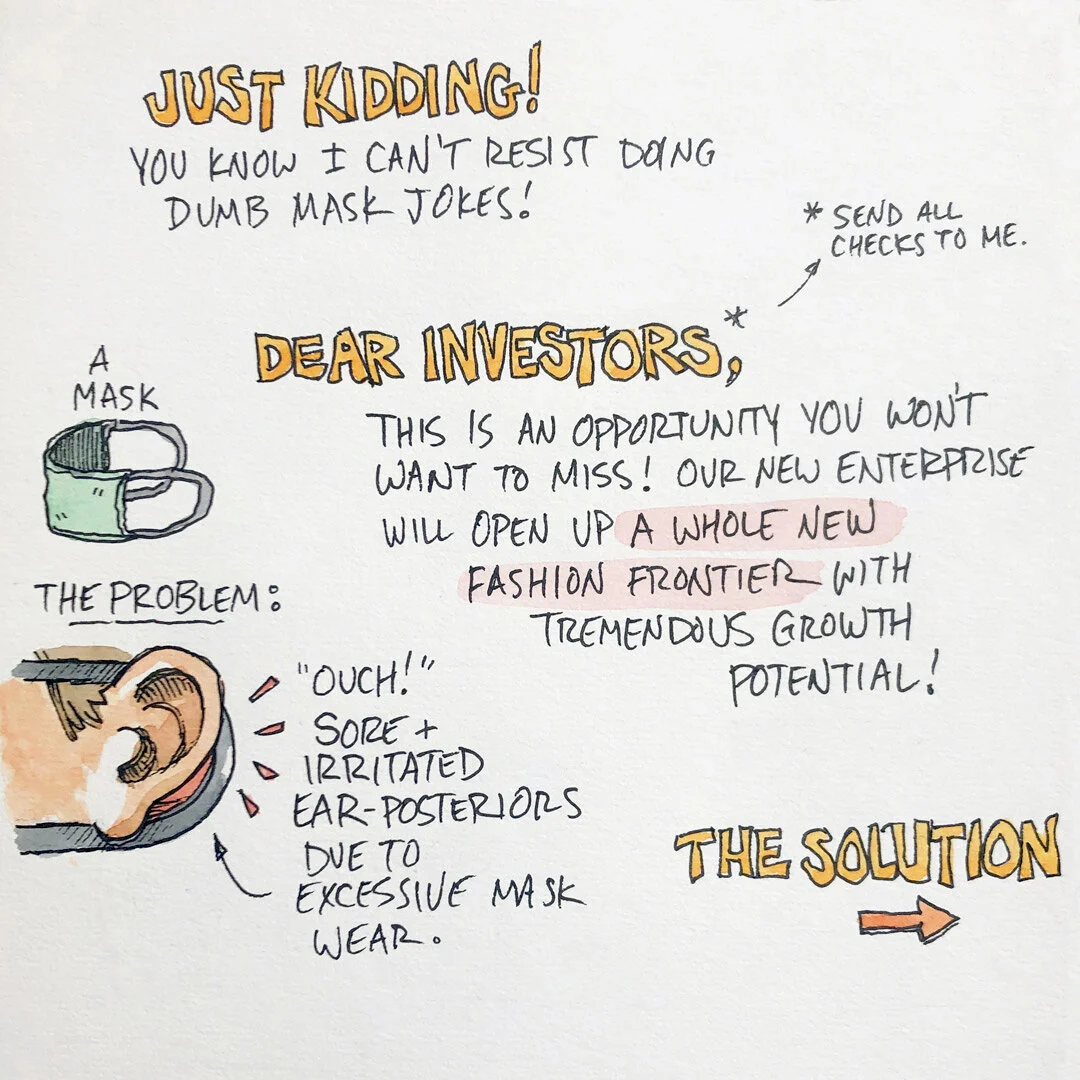 JUST KIDDING!
YOU KNOW I CAN'T RESIST DOING
DUMB MASK JOKES!
* SEND ALL
CHECKS TO ME.
DEAR INVESTORS,*
THIS IS AN OPPORTUNITY YOU WON'T
WANT TO MISS! OUR NEW ENTERPRISE
WILL OPEN UP A WHOLE NEW
FASHION FRONTIER WITH
TREMENDOUS GROWTH
POTENTIAL!
A
MASK
THE PROBLEM:
"OUCH!"
SORE +
IRRITATED
EAR-POSTERIORS
DUE TO
EXCESSIVE MASK
WEAR.
THE SOLUTION